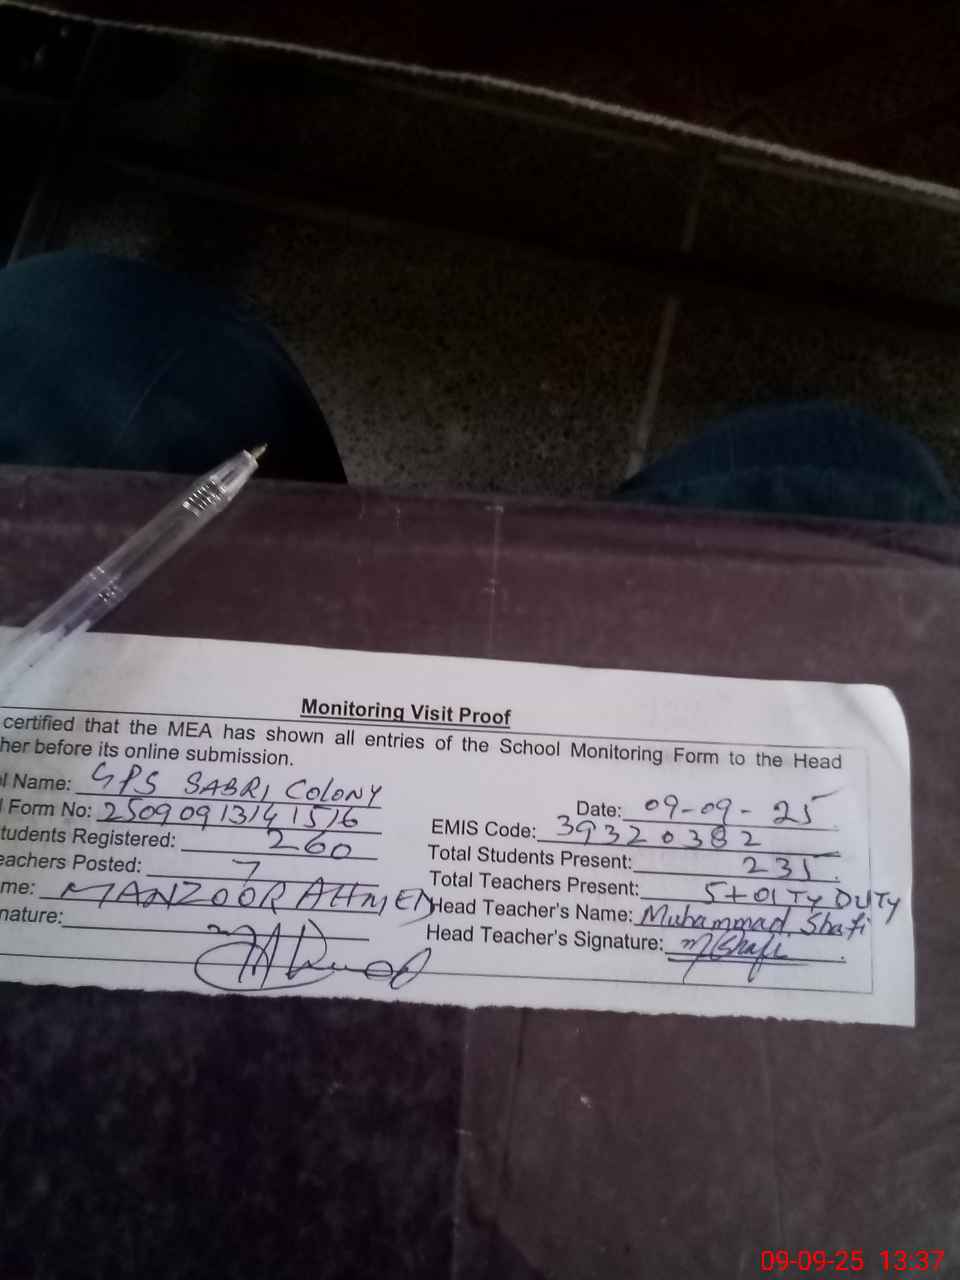 Monitoring Visit Proof
certified that the MEA has shown all entries of the School Monitoring Form to the Head
her before its online submission.
l Name: GPS SABRI COLONY
Date: 09-09-25
l Form No: 25090913141516
EMIS Code: 39320382
tudents Registered: 260
Total Students Present: 235
eachers Posted: 7
Total Teachers Present: 5+01 TY DUTY
me: MANZOOR AHMED
Head Teacher's Name: Muhammad Shafi
nature:
Head Teacher's Signature: M Shafi
09-09-25 13:37